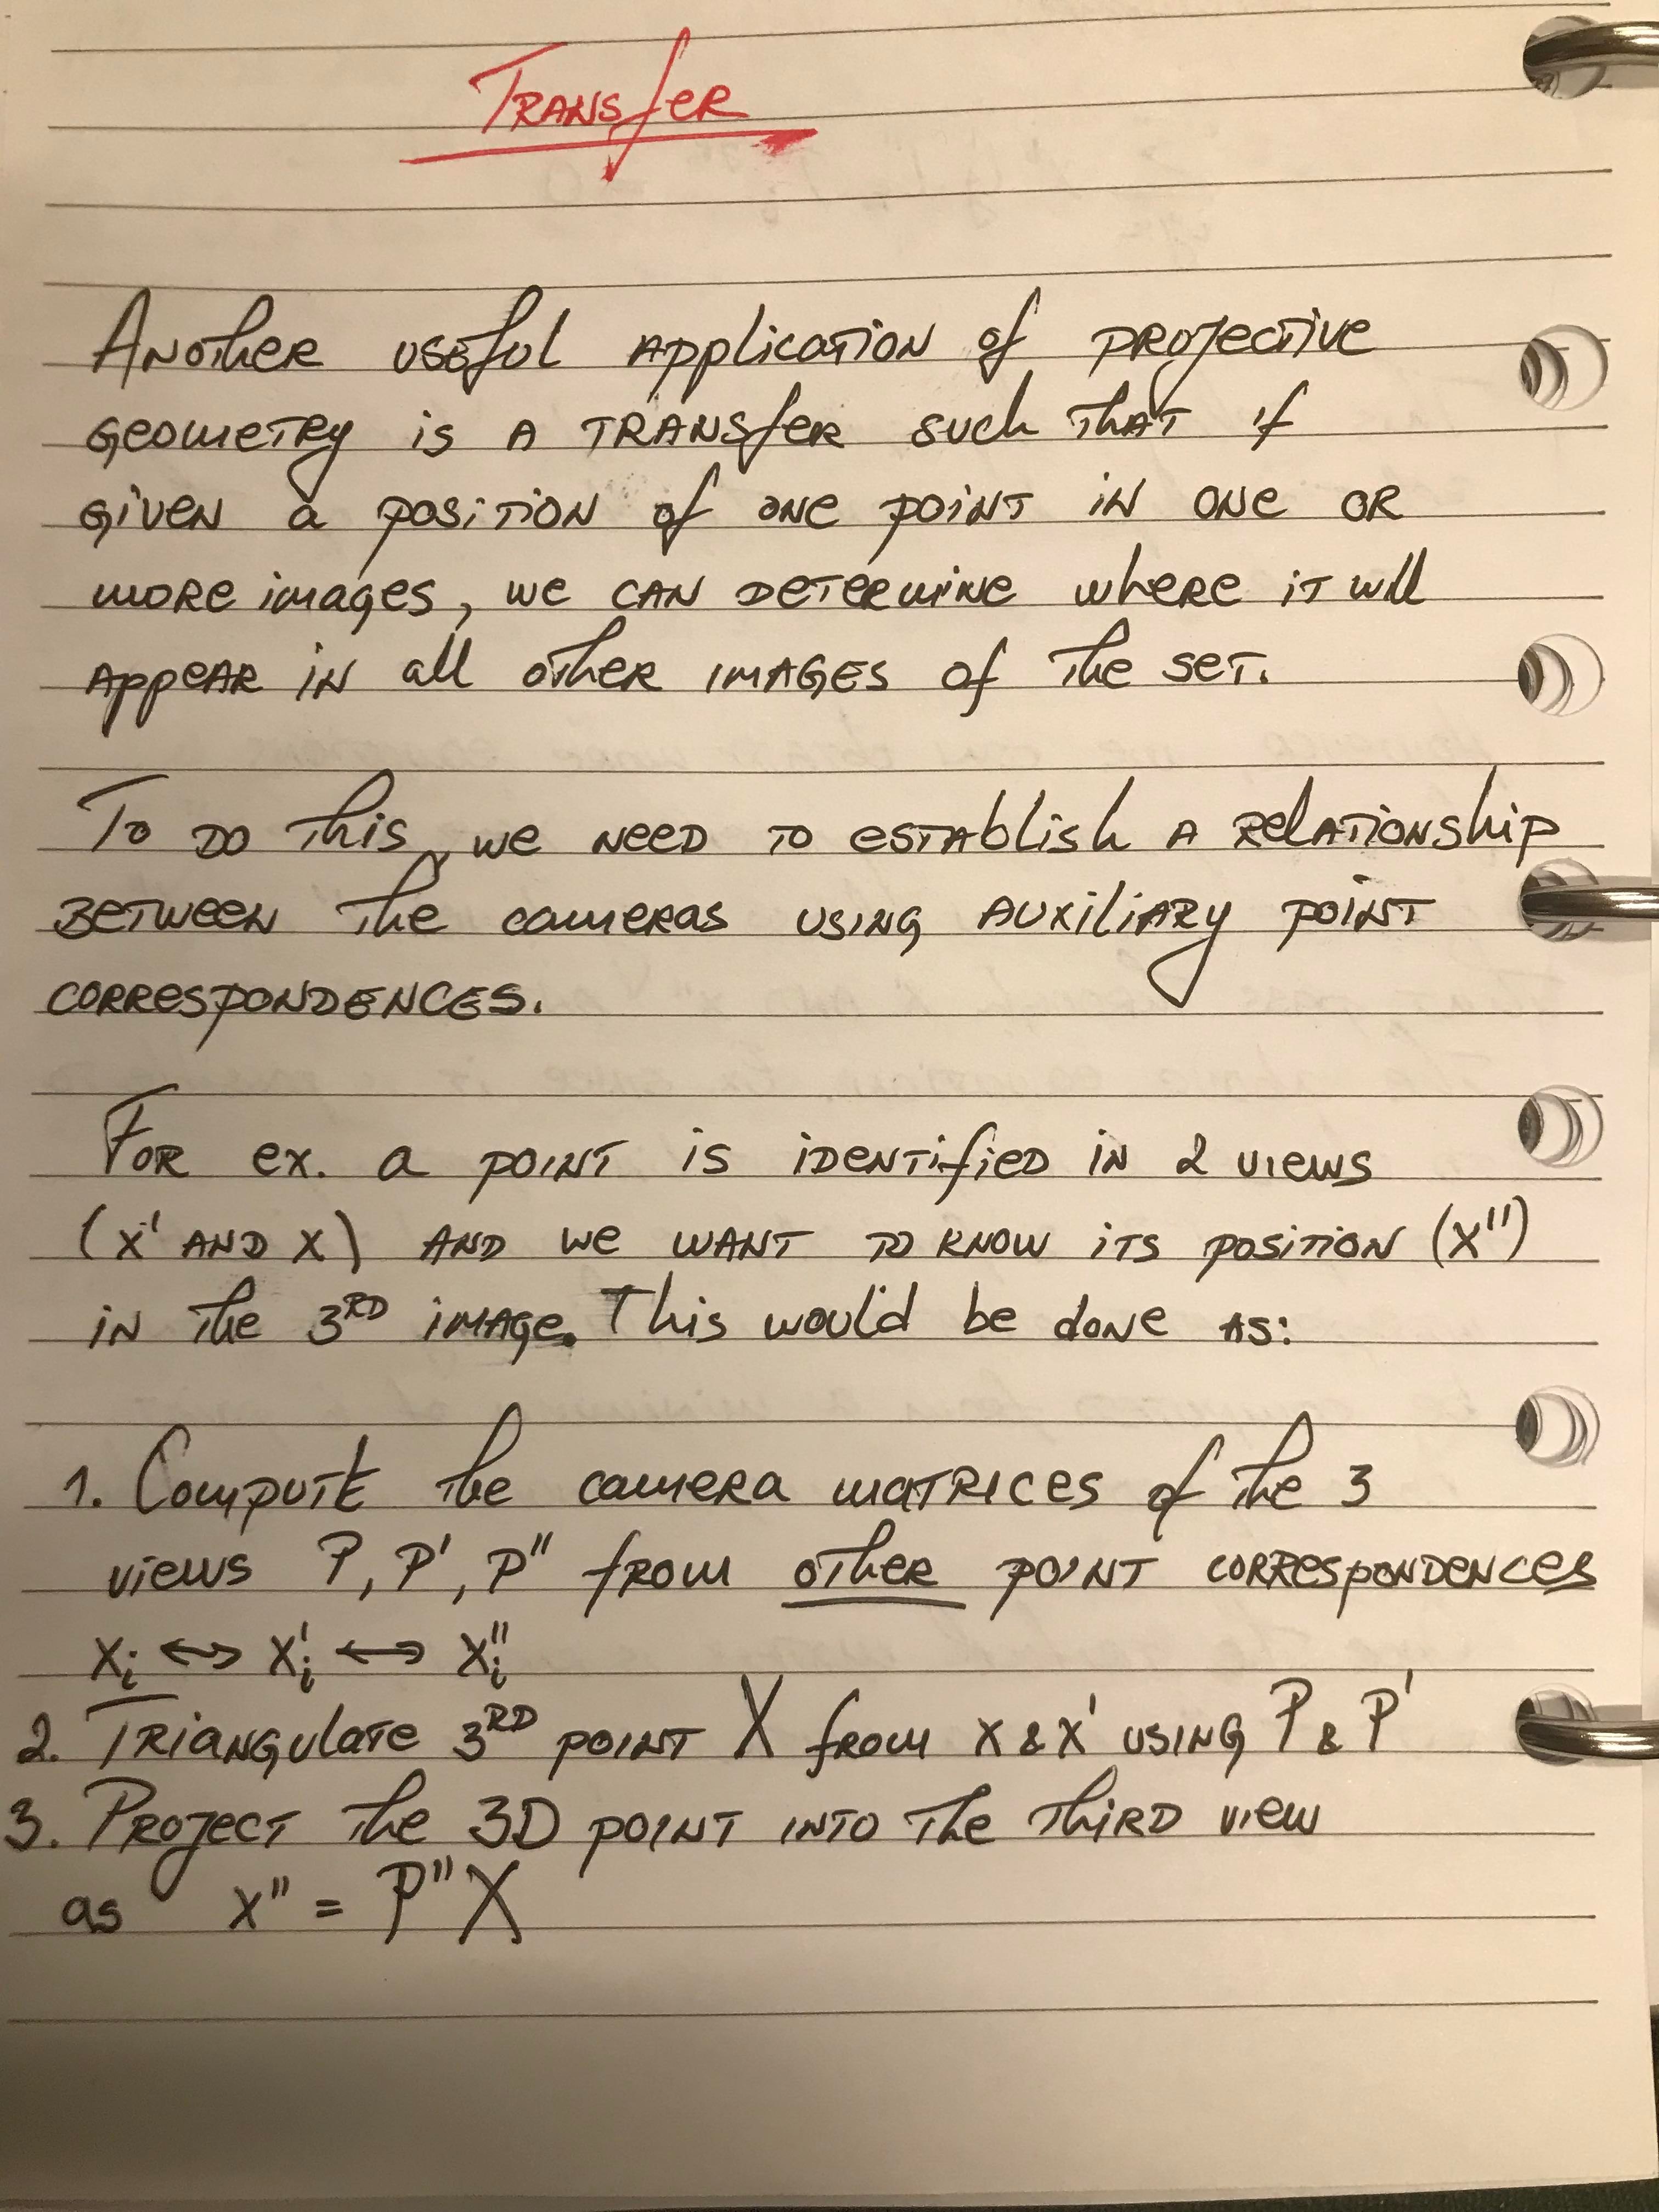 Transfer
Another useful application of projective
geometry is a transfer such that if
given a position of one point in one or
more images, we can determine where it will
appear in all other images of the set.
To do this, we need to establish a relationship
between the cameras using auxiliary point
correspondences.
For ex. a point is identified in 2 views
(x' and x) and we want to know its position (x'')
in the 3RD image. This would be done as:
1. Compute the camera matrices of the 3
views P, P', P'' from other point correspondences
xi ↔ xi' ↔ xi''
2. Triangulate 3RD point X from x & x' using P & P'
3. Project the 3D point into the third view
as x'' = P''X